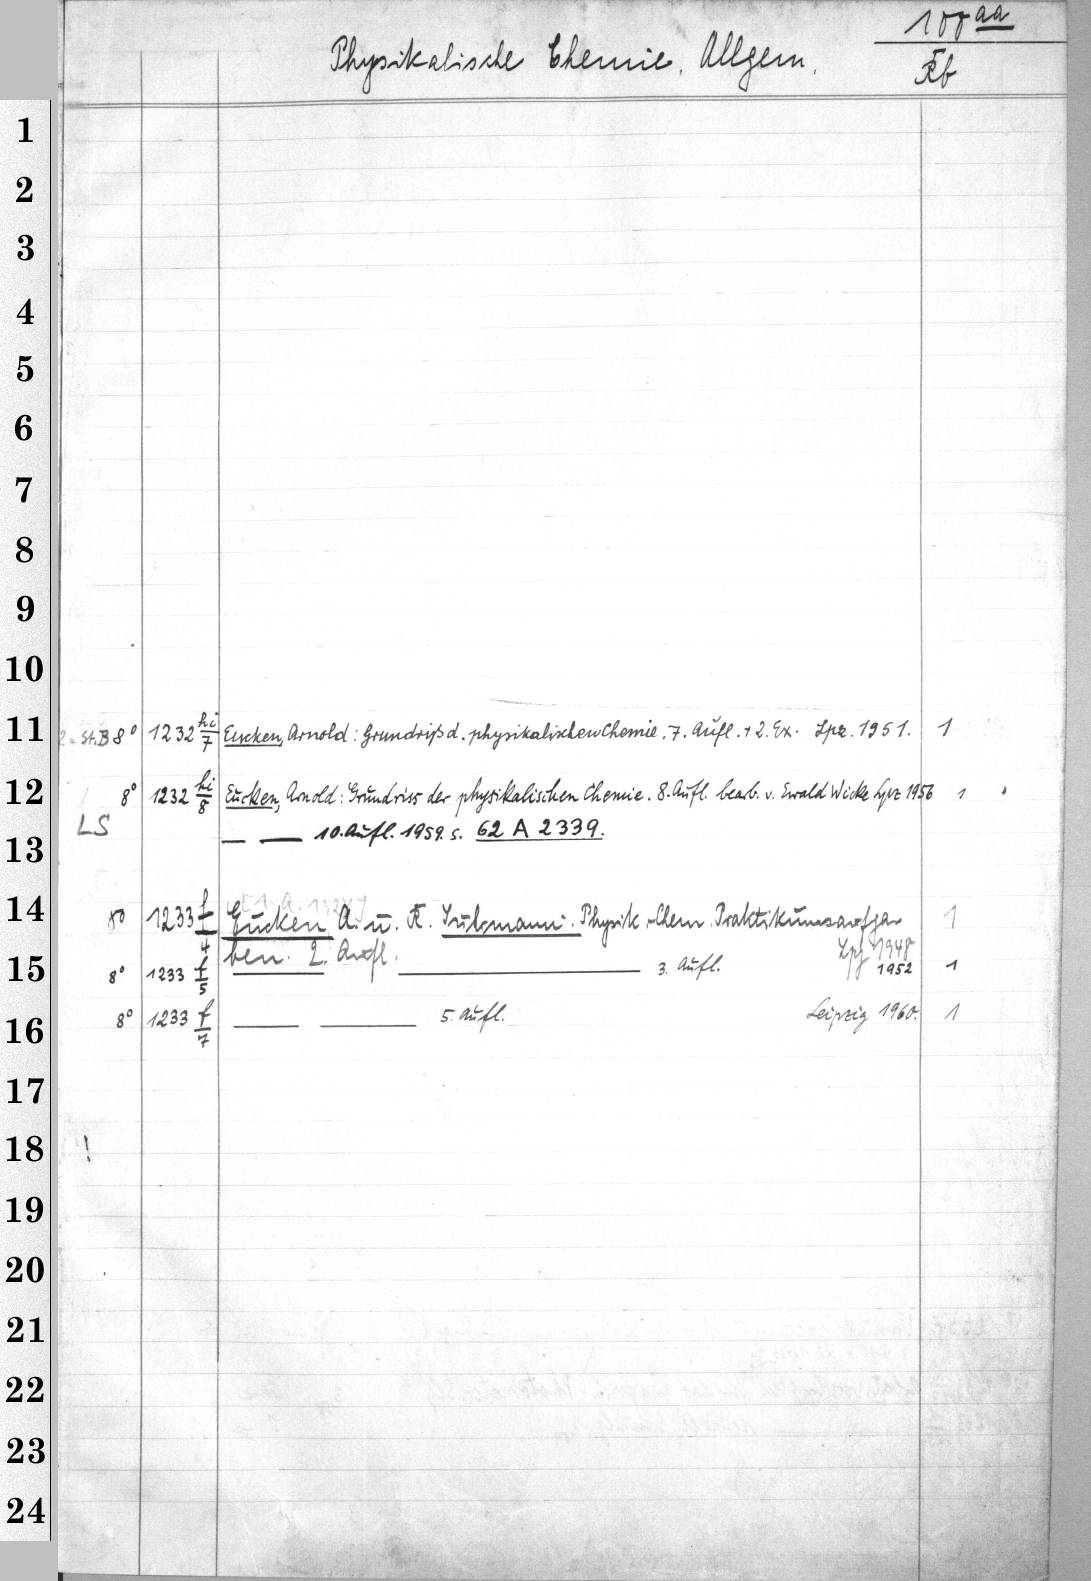 100 aa
Physikalische Chemie. Allgem.
Kb
1
2
3
4
5
6
7
8
9
10
11 St.B 8° 1232 hi/7 Eucken, Arnold: Grundriß d. physikalischen Chemie. 7. Aufl. + 2. Ex. Lpz. 1951. 1
12 8° 1232 hi/8 Eucken, Arnold: Grundriss der physikalischen Chemie. 8. Aufl. bearb. v. Ewald Wicke Lpz 1956 1
LS
13 — — 10. Aufl. 1959. s. 62 A 2339.
14 8° 1233 f/4 Eucken, A. u. R. Suhrmann: Physik.-Chem. Praktikumsaufga- 1
ben. 2. Aufl. Lpz 1948
15 8° 1233 f/5 — — 3. Aufl. 1952 1
16 8° 1233 f/7 — — 5. Aufl. Leipzig 1960. 1
17
18 !
19
20
21
22
23
24